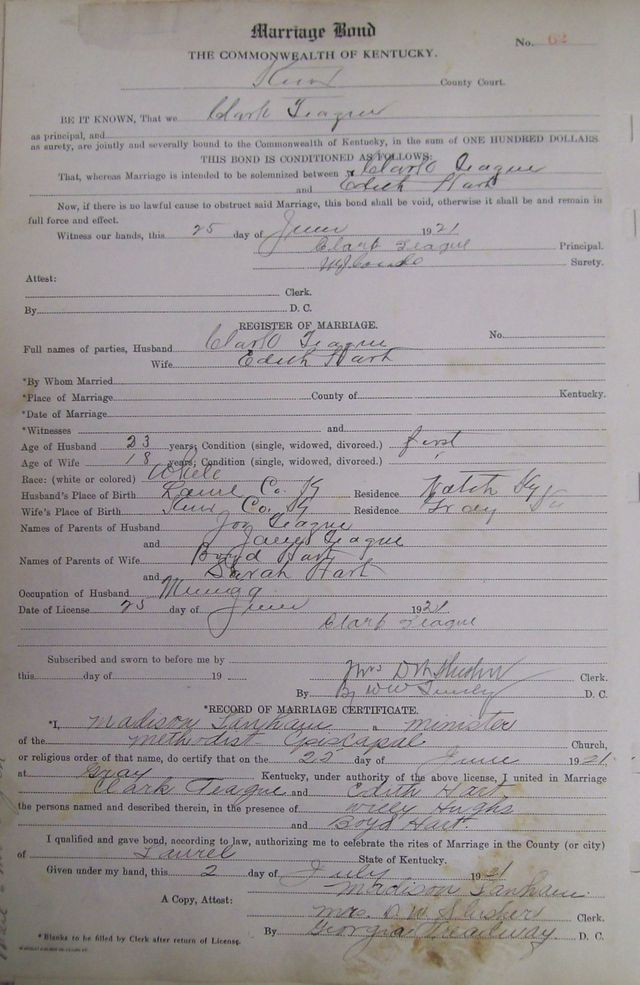 Marriage Bond
No. 62
THE COMMONWEALTH OF KENTUCKY.
Knox County Court.
BE IT KNOWN, That we Clark Teague
as principal, and
as surety, are jointly and severally bound to the Commonwealth of Kentucky, in the sum of ONE HUNDRED DOLLARS
THIS BOND IS CONDITIONED AS FOLLOWS:
That, whereas Marriage is intended to be solemnized between Clark Teague
and Edith Hart
Now, if there is no lawful cause to obstruct said Marriage, this bond shall be void, otherwise it shall be and remain in
full force and effect.
Witness our hands, this 25 day of June 1921
Clark Teague Principal.
Surety.
Attest:
Clerk.
By D. C.
REGISTER OF MARRIAGE.
No.
Full names of parties, Husband Clark Teague
Wife Edith Hart
*By Whom Married
*Place of Marriage County of Kentucky.
*Date of Marriage
*Witnesses and
Age of Husband 23 years; Condition (single, widowed, divorced.) first
Age of Wife 18 years; Condition (single, widowed, divorced.)
Race: (white or colored) White
Husband's Place of Birth Laurel Co. Ky Residence Ky
Wife's Place of Birth Knox Co. Ky Residence Gray Ky
Names of Parents of Husband Teague
and Teague
Names of Parents of Wife Boyd Hart
and Sarah Hart
Occupation of Husband Mining
Date of License 25 day of June 1921
Clark Teague
Subscribed and sworn to before me by
this day of 19
Mrs D W Slusher Clerk.
By D. C.
*RECORD OF MARRIAGE CERTIFICATE.
*I, Madison a minister
of the Methodist Episcapal Church,
or religious order of that name, do certify that on the 25 day of June 1921.
at Gray Kentucky, under authority of the above license, I united in Marriage
Clark Teague and Edith Hart
the persons named and described therein, in the presence of Willy Hughs
and Boyd Hart.
I qualified and gave bond, according to law, authorizing me to celebrate the rites of Marriage in the County (or city)
of Laurel State of Kentucky.
Given under my hand, this 2 day of July 1921
Madison
A Copy, Attest:
Mrs. D. W. Slusher Clerk.
By Georgia Treadway. D. C.
*Blanks to be filled by Clerk after return of License.